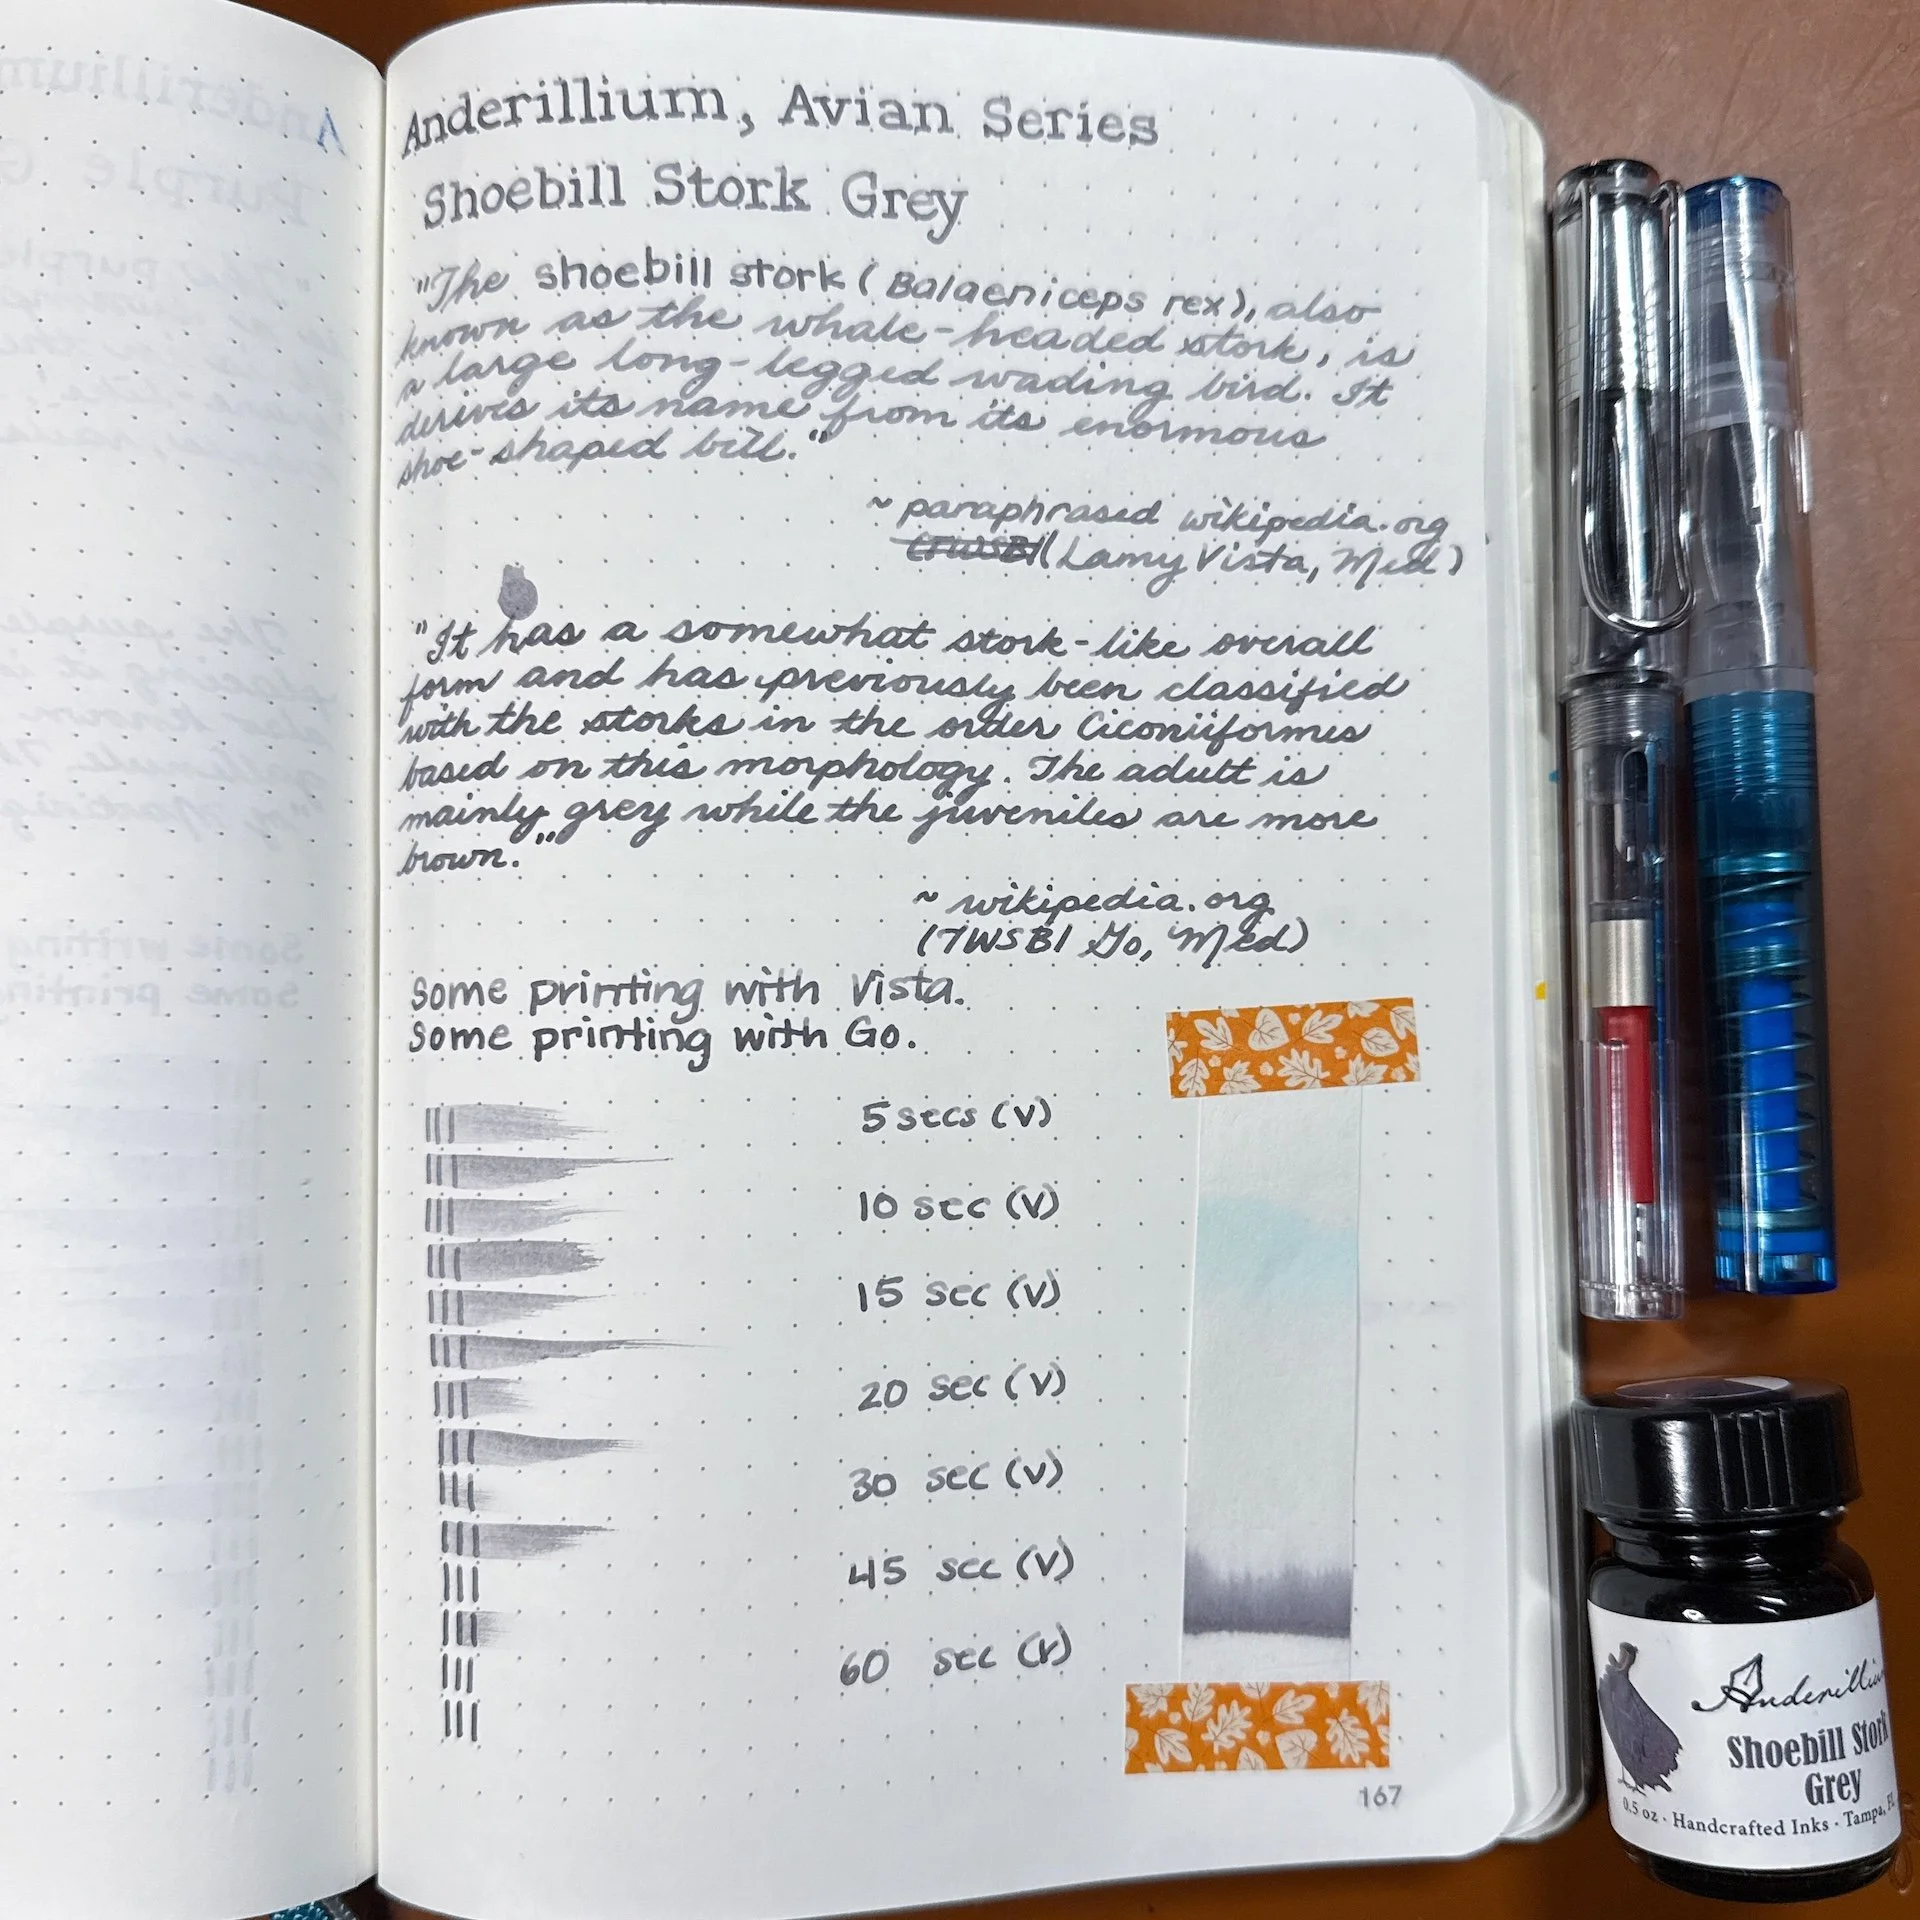 Anderillium, Avian Series
Shoebill Stork Grey
"The shoebill stork (Balaeniceps rex), also
known as the whale-headed stork, is
a large long-legged wading bird. It
derives its name from its enormous
shoe-shaped bill."
~ paraphrased wikipedia.org
(TWSBI (Lamy Vista, Med)
"It has a somewhat stork-like overall
form and has previously been classified
with the storks in the order Ciconiiformes
based on this morphology. The adult is
mainly grey while the juveniles are more
brown."
~ wikipedia.org
(TWSBI Go, Med)
Some printing with Vista.
Some printing with Go.
5 secs (V)
10 sec (V)
15 sec (V)
20 sec (V)
30 sec (V)
45 sec (V)
60 sec (V)
167
Anderillium
Shoebill Stork
Grey
0.5 oz · Handcrafted Inks · Tampa, FL